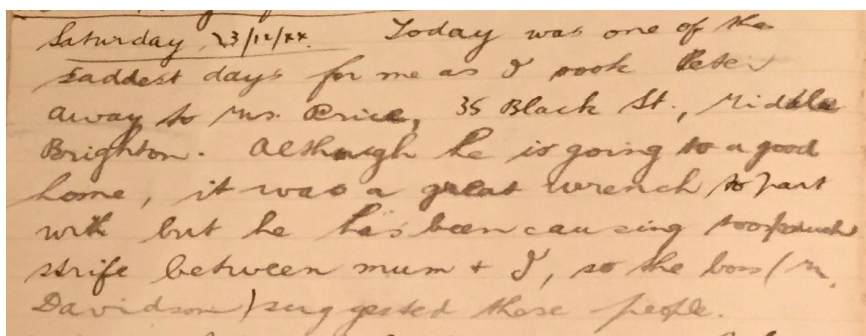 Saturday, 23/12/44. Today was one of the
saddest days for me as I took Peter
away to Mrs. Price, 35 Black St., Middle
Brighton. Although he is going to a good
home, it was a great wrench to part
with but he has been causing too much
strife between mum + I, so the boss (Mr.
Davidson) suggested these people.